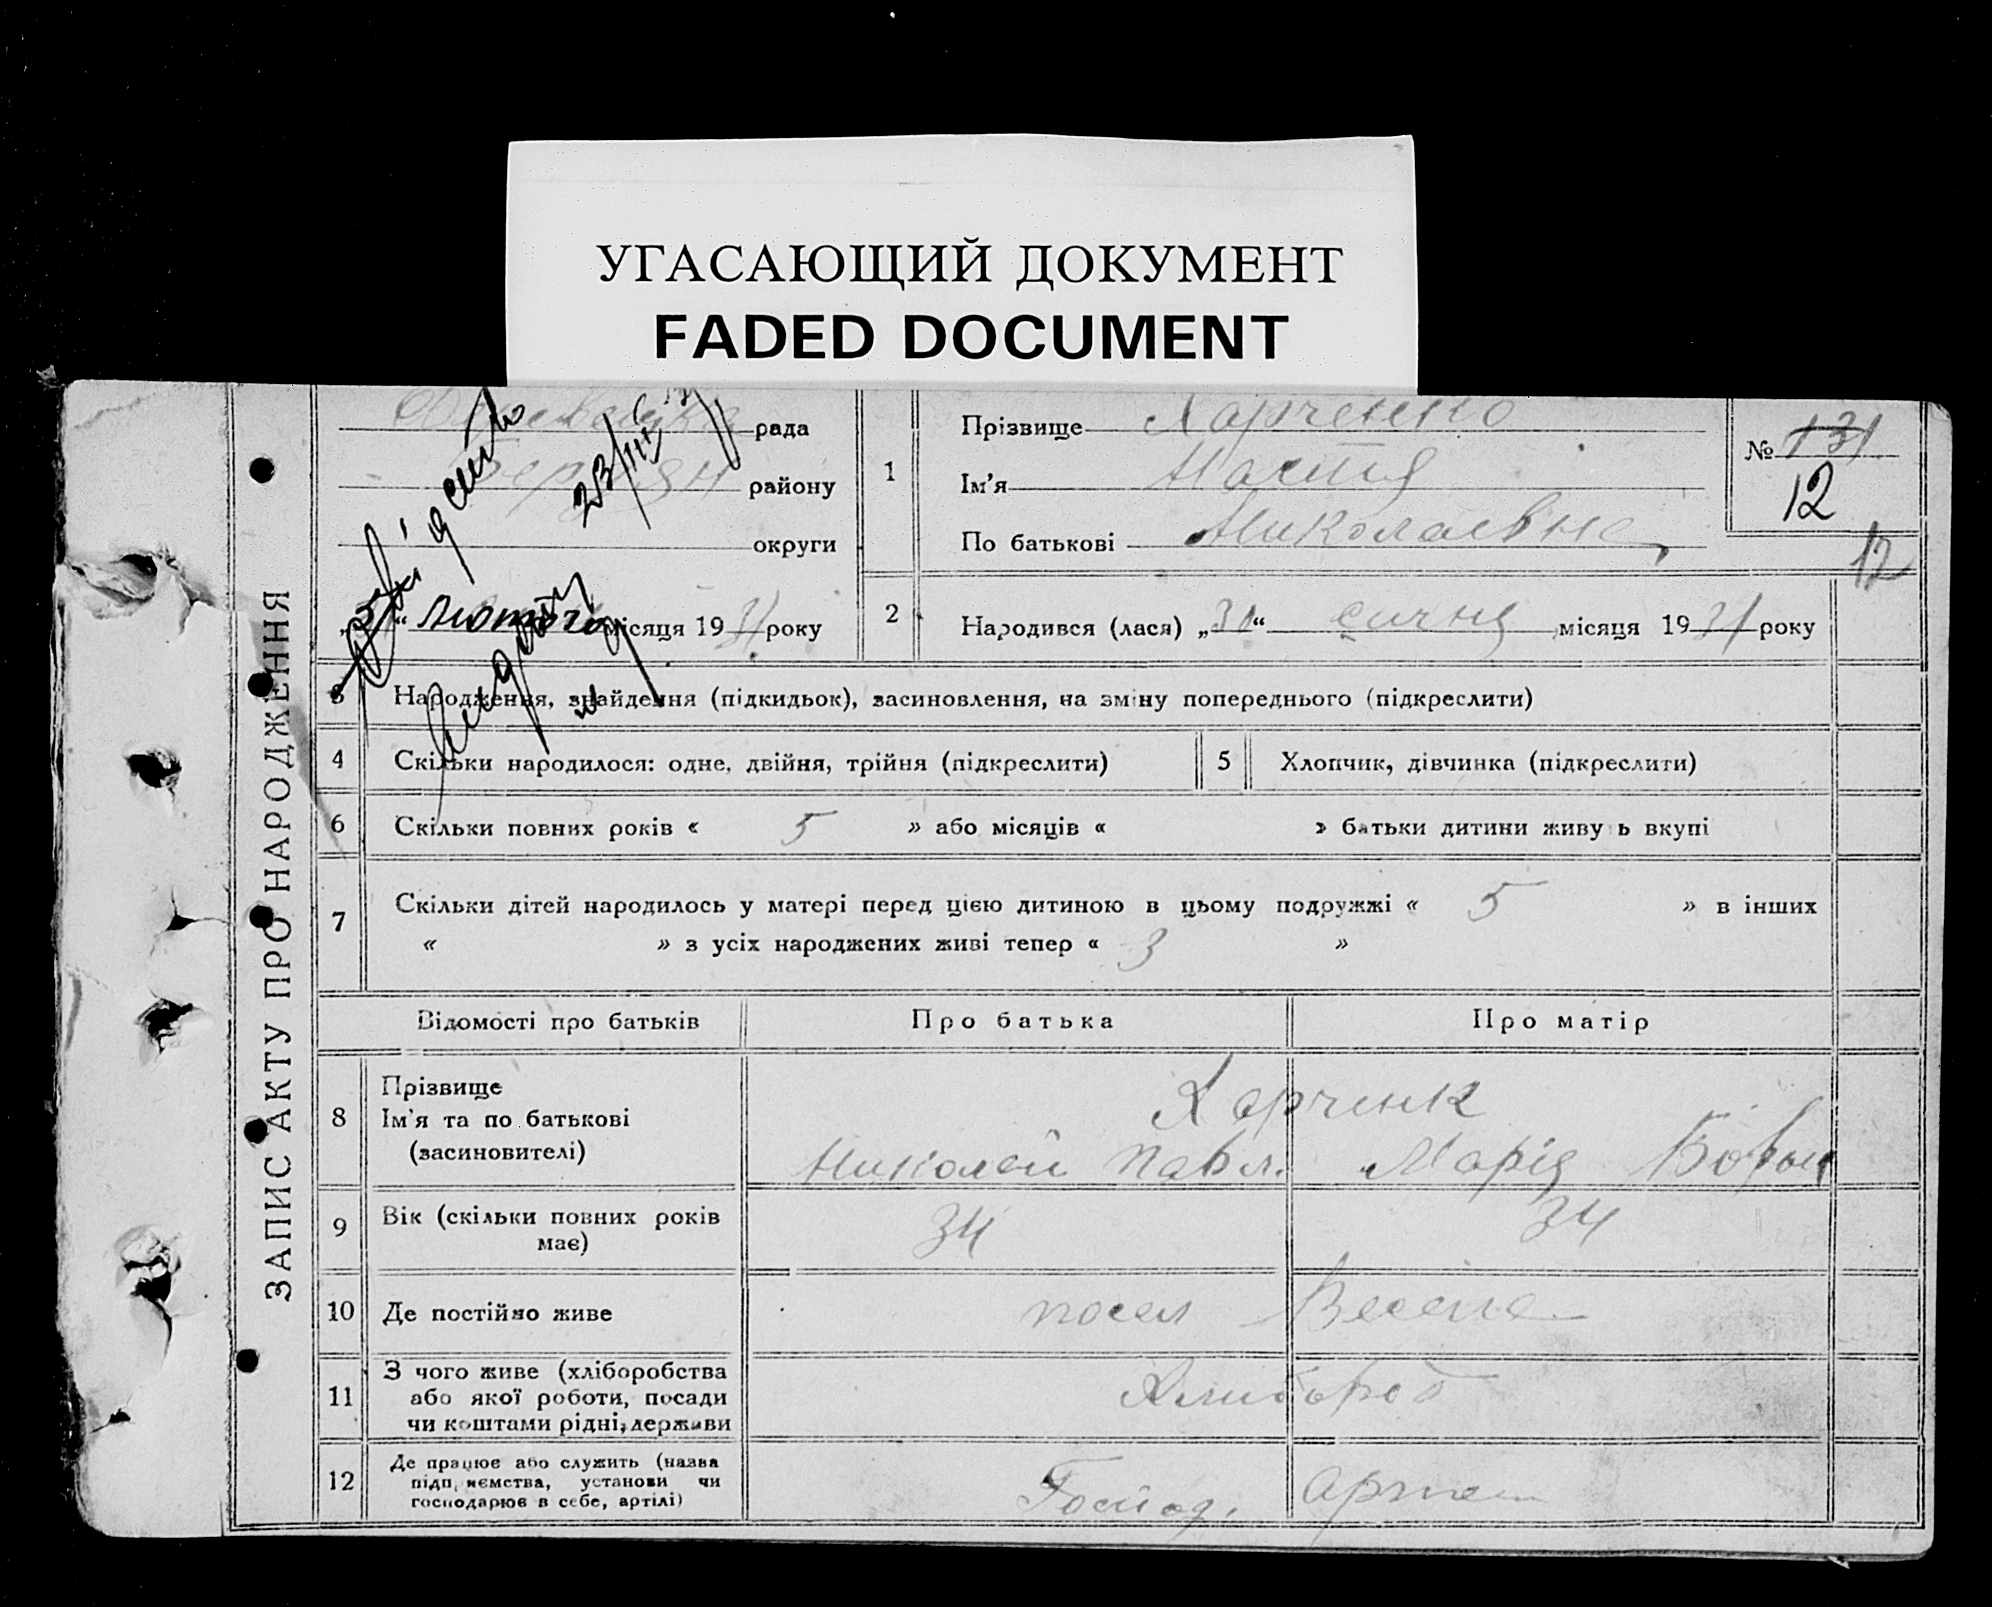 УГАСАЮЩИЙ ДОКУМЕНТ
FADED DOCUMENT
рада
району
округи
„5“ Лютого місяця 1931 року
23/III
1
Прізвище Харченко
Ім'я Настя
По батькові Николаевна
№ 131
12
12
2
Народився (лася) „30“ січня місяця 1931 року
ЗАПИС АКТУ ПРО НАРОДЖЕННЯ
3 Народження, знайдення (підкидьок), засиновлення, на зміну попереднього (підкреслити)
4 Скільки народилося: одне, двійня, трійня (підкреслити)
5 Хлопчик, дівчинка (підкреслити)
6 Скільки повних років « 5 » або місяців « » батьки дитини живуть вкупі
7 Скільки дітей народилось у матері перед цією дитиною в цьому подружжі « 5 » в інших
« » з усіх народжених живі тепер « 3 »
Відомості про батьків
Про батька
Про матір
8 Прізвище
Ім'я та по батькові
(засиновителі)
Харченк
Николай Павл. Марія
9 Вік (скільки повних років
має)
34 34
10 Де постійно живе
посел Веселе
11 З чого живе (хліборобства
або якої роботи, посади
чи коштами рідні, держави
Хлибороб
12 Де працює або служить (назва
підприємства, установи чи
господарює в себе, артілі)
Господ. артел